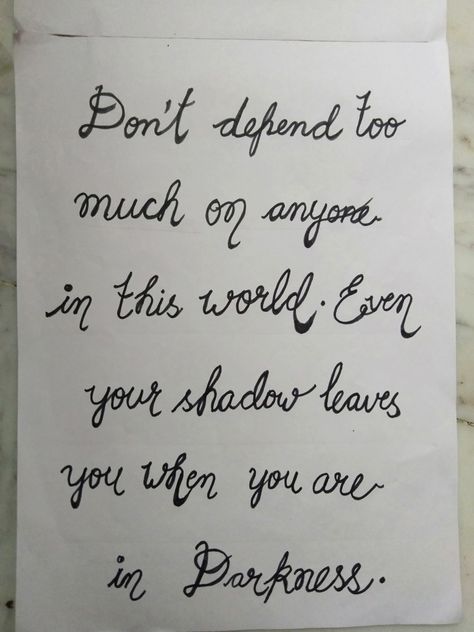 Don't depend too
much on anyone
in this world. Even
your shadow leaves
you when you are
in Darkness.